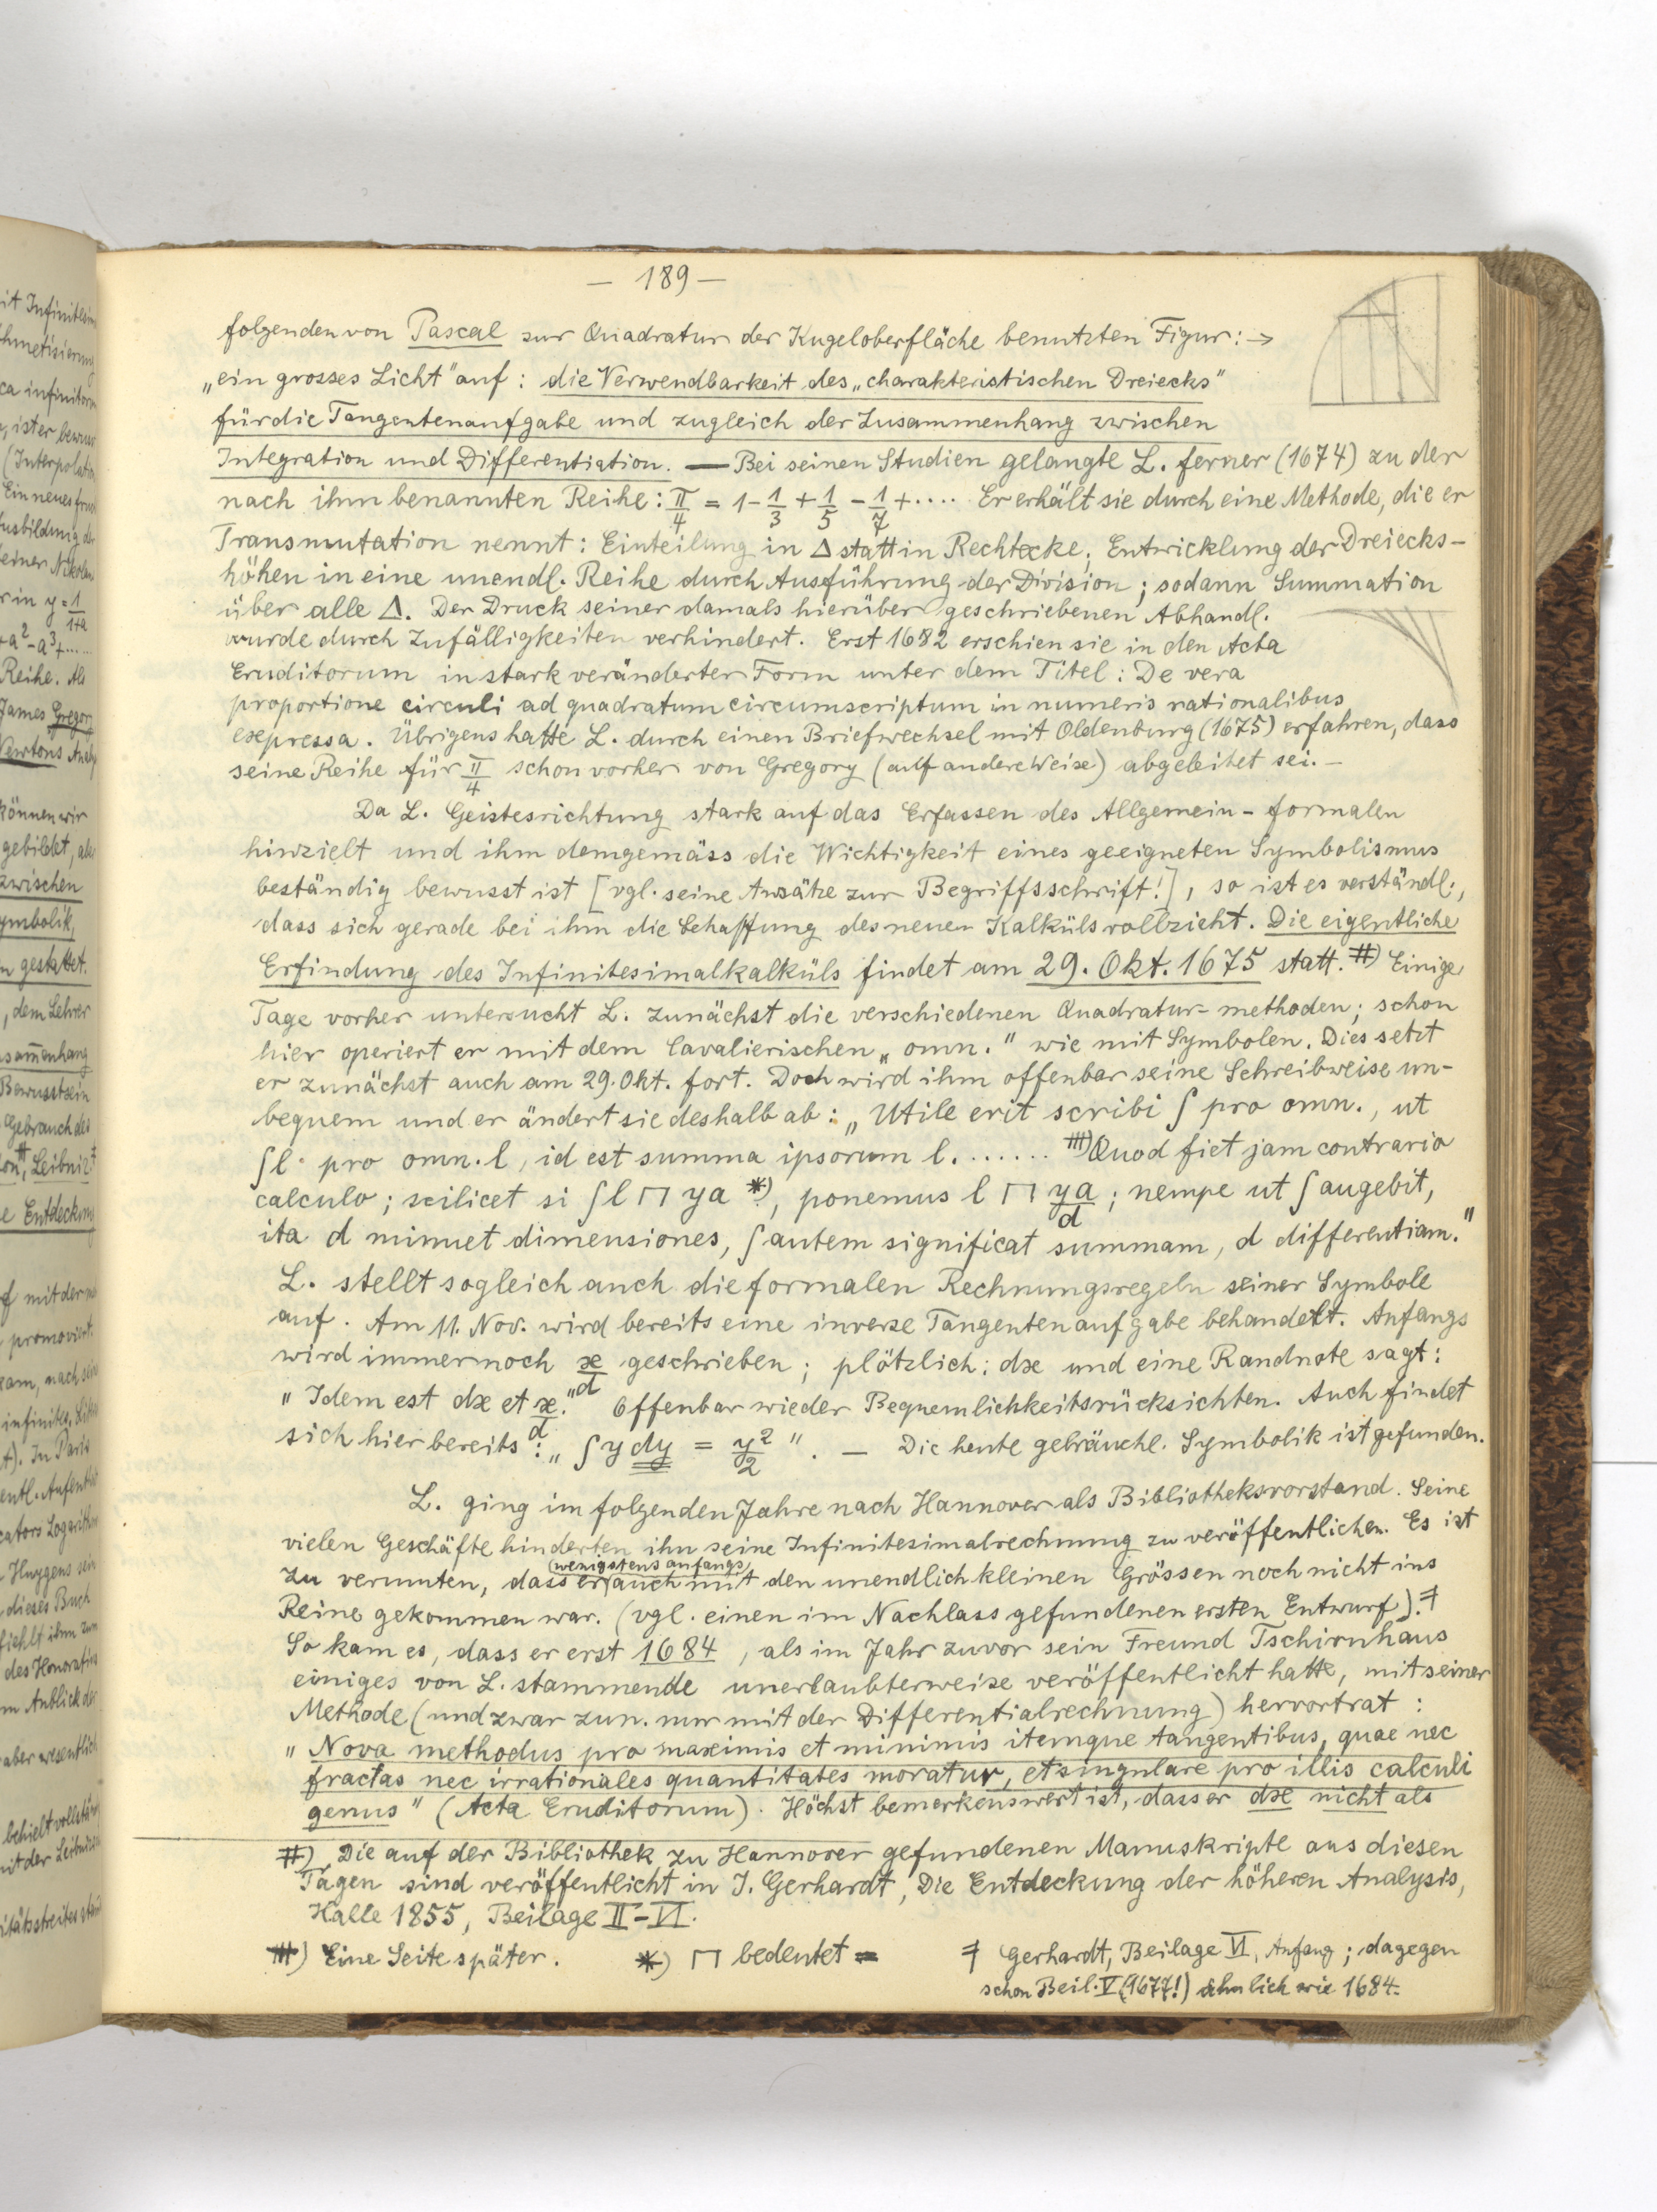 — 189 —
folgenden von Pascal zur Quadratur der Kugeloberfläche benutzten Figur: →
„ein grosses Licht" auf: die Verwendbarkeit des „charakteristischen Dreiecks"
für die Tangentenaufgabe und zugleich der Zusammenhang zwischen
Integration und Differentiation. — Bei seinen Studien gelangte L. ferner (1674) zu der
nach ihm benannten Reihe: π/4 = 1 - 1/3 + 1/5 - 1/7 + .... Er erhält sie durch eine Methode, die er
Transmutation nennt: Einteilung in Δ statt in Rechtecke, Entwicklung der Dreiecks-
höhen in eine unendl. Reihe durch Ausführung der Division; sodann Summation
über alle Δ. Der Druck seiner damals hierüber geschriebenen Abhandl.
wurde durch Zufälligkeiten verhindert. Erst 1682 erschien sie in den Acta
Eruditorum in stark veränderter Form unter dem Titel: De vera
proportione circuli ad quadratum circumscriptum in numeris rationalibus
expressa. Übrigens hatte L. durch einen Briefwechsel mit Oldenburg (1675) erfahren, dass
seine Reihe für π/4 schon vorher von Gregory (auf andere Weise) abgeleitet sei. —
Da L. Geistesrichtung stark auf das Erfassen des Allgemein-formalen
hinzielt und ihm demgemäss die Wichtigkeit eines geeigneten Symbolismus
beständig bewusst ist [vgl. seine Ansätze zur Begriffsschrift!], so ist es verständl.,
dass sich gerade bei ihm die Schaffung des neuen Kalküls vollzieht. Die eigentliche
Erfindung des Infinitesimalkalküls findet am 29. Okt. 1675 statt. #) Einige
Tage vorher untersucht L. zunächst die verschiedenen Quadratur-methoden; schon
hier operiert er mit dem Cavalierischen „omn." wie mit Symbolen. Dies setzt
er zunächst auch am 29. Okt. fort. Doch wird ihm offenbar seine Schreibweise un-
bequem und er ändert sie deshalb ab: „Utile erit scribi ∫ pro omn., ut
∫l pro omn. l, id est summa ipsorum l. ...... #)Quod fiet jam contrario
calculo; scilicet si ∫l ⊓ ya *), ponemus l ⊓ ya/d; nempe ut ∫ augebit,
ita d minuet dimensiones, ∫ autem significat summam, d differentiam."
L. stellt sogleich auch die formalen Rechnungsregeln seiner Symbole
auf. Am 11. Nov. wird bereits eine inverse Tangentenaufgabe behandelt. Anfangs
wird immer noch x/d geschrieben; plötzlich: dx und eine Randnote sagt:
"Idem est dx et x/d." Offenbar wieder Bequemlichkeitsrücksichten. Auch findet
sich hier bereits: „∫ y dy = y²/2". — Die heute gebräuchl. Symbolik ist gefunden.
L. ging im folgenden Jahre nach Hannover als Bibliotheksvorstand. Seine
vielen Geschäfte hinderten ihn seine Infinitesimalrechnung zu veröffentlichen. Es ist
zu vermuten, dass er (wenigstens anfangs) auch mit den unendlich kleinen Grössen noch nicht ins
Reine gekommen war. (vgl. einen im Nachlass gefundenen ersten Entwurf). ǂ
So kam es, dass er erst 1684, als im Jahr zuvor sein Freund Tschirnhaus
einiges von L. stammende unerlaubterweise veröffentlicht hatte, mit seiner
Methode (und zwar zun. nur mit der Differentialrechnung) hervortrat:
„Nova methodus pro maximis et minimis itemque tangentibus, quae nec
fractas nec irrationales quantitates moratur, et singulare pro illis calculi
genus" (Acta Eruditorum). Höchst bemerkenswert ist, dass er dx nicht als
#) Die auf der Bibliothek zu Hannover gefundenen Manuskripte aus diesen
Tagen sind veröffentlicht in J. Gerhardt, Die Entdeckung der höheren Analysis,
Halle 1855, Beilage II-VI.
#) Eine Seite später. *) ⊓ bedeutet = ǂ Gerhardt, Beilage VI, Anfang; dagegen
schon Beil. V (1677!) ähnlich wie 1684.